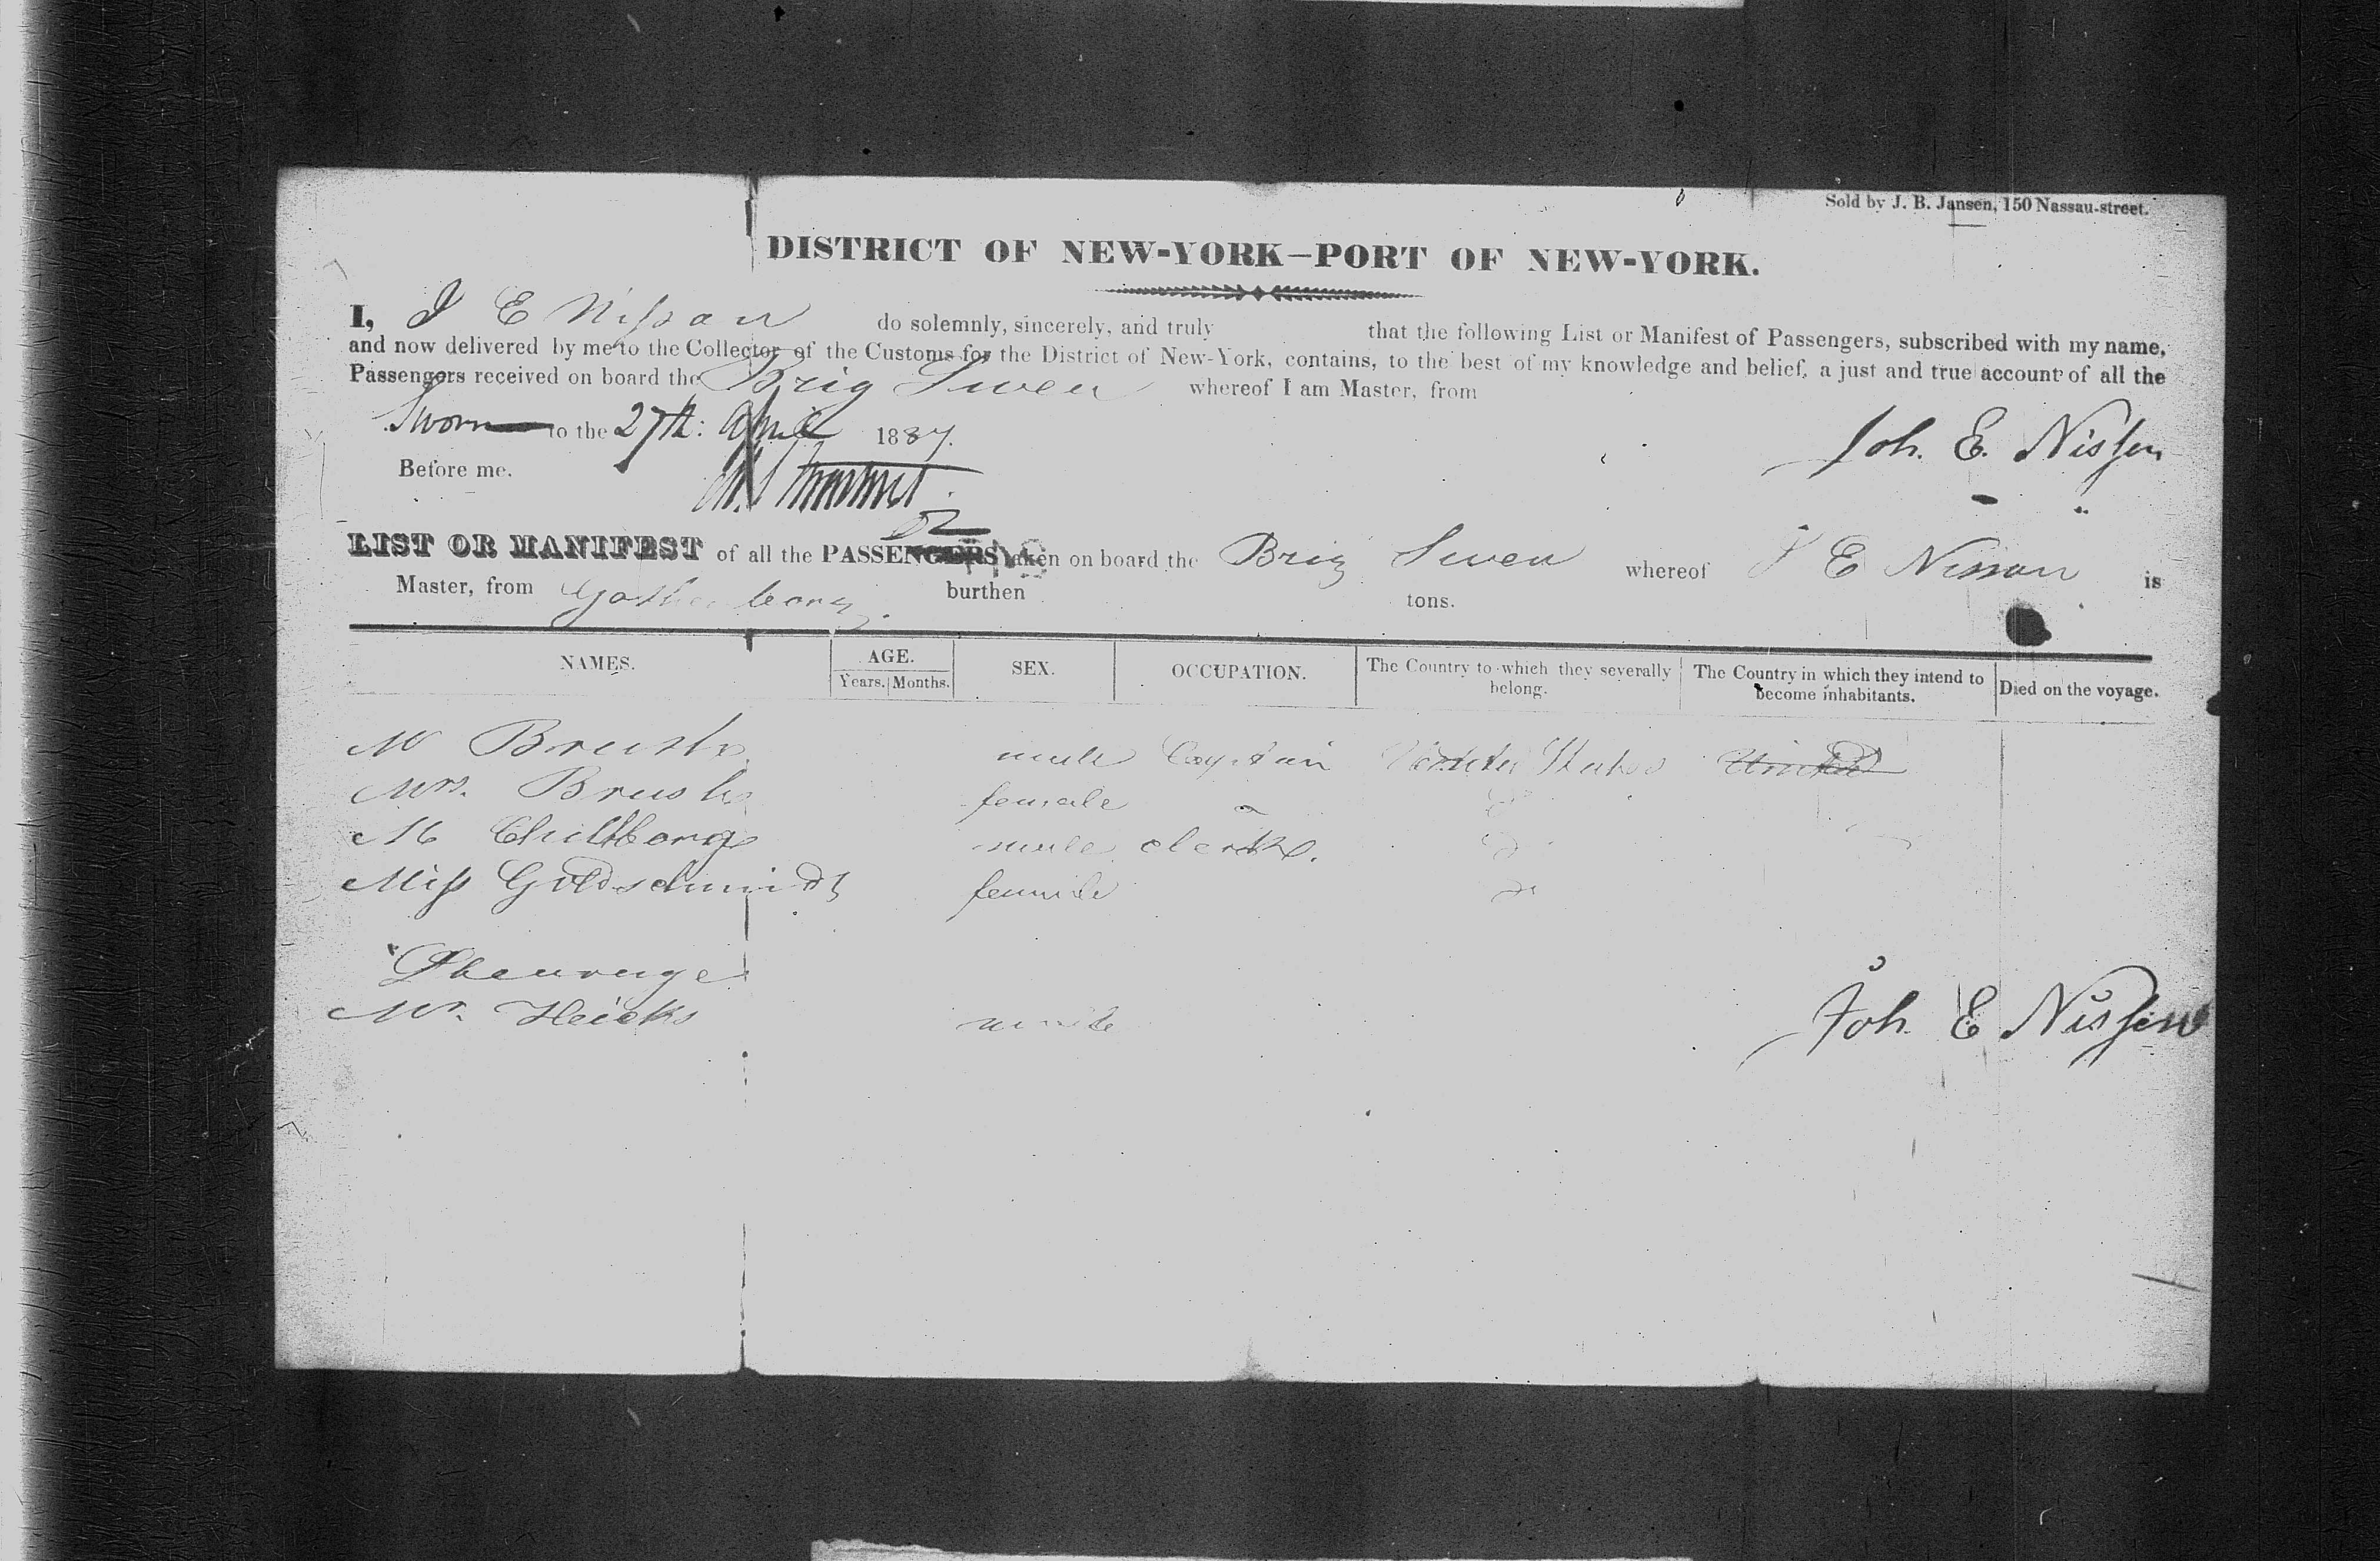 Sold by J. B. Jansen, 150 Nassau-street.
DISTRICT OF NEW-YORK—PORT OF NEW-YORK.
I, J E Nissan do solemnly, sincerely, and truly that the following List or Manifest of Passengers, subscribed with my name,
and now delivered by me to the Collector of the Customs for the District of New-York, contains, to the best of my knowledge and belief, a just and true account of all the
Passengers received on board the Brig Swen whereof I am Master, from
Sworn to the 27th: April 1837.
Joh. E. Nissen
Before me.
52
LIST OR MANIFEST of all the PASSENGERS taken on board the Brig Swen whereof J E Nissan is
Master, from Gothenborg burthen tons.
NAMES. AGE. SEX. OCCUPATION. The Country to which they severally belong. The Country in which they intend to become inhabitants. Died on the voyage.
Years. Months.
Mr Brush male Captain United States United
Mrs. Brush female
M male clerk
Miss Goldschmidt female
Mr. male
Joh E Nissen